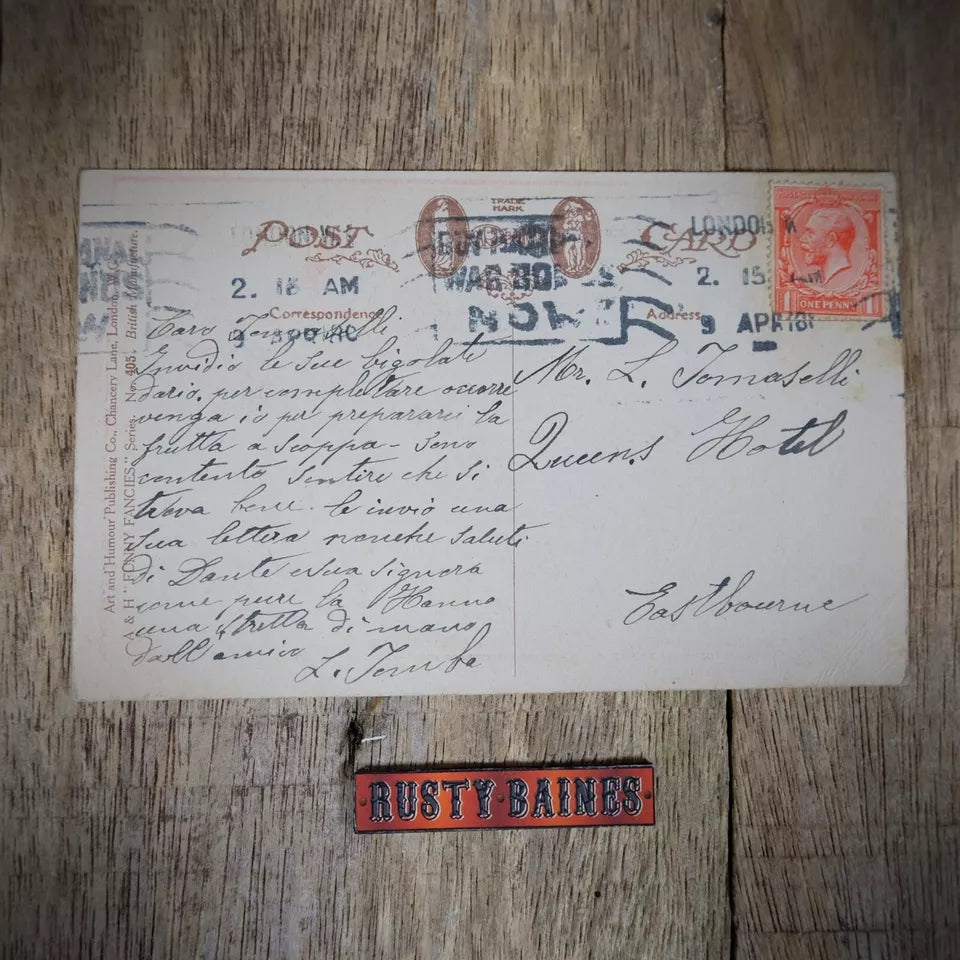 POST CARD
TRADE
MARK
LONDON W
BUY
WAR BONDS
NOW
2. 15 AM
9 APR 18
2. 15 AM
9 APR 18
ONE PENNY
Correspondence
Address
Art and Humour Publishing Co., Chancery Lane, London, W.C.
A & H "FUNNY FANCIES" Series. No. 405. British Manufacture.
Caro Tomaselli
Invidio le sue bigolate
dario, per completare occorre
venga io per prepararci la
frutta a scoppa - Sono
contento sentire che si
trova bene. le invio una
sua lettera nonche saluti
di Dante e sua signora
come pure la Hanno
una stretta di mano
dall'amico
L. Tomba
Mr. L. Tomaselli
Queens Hotel
Eastbourne
RUSTY BAINES